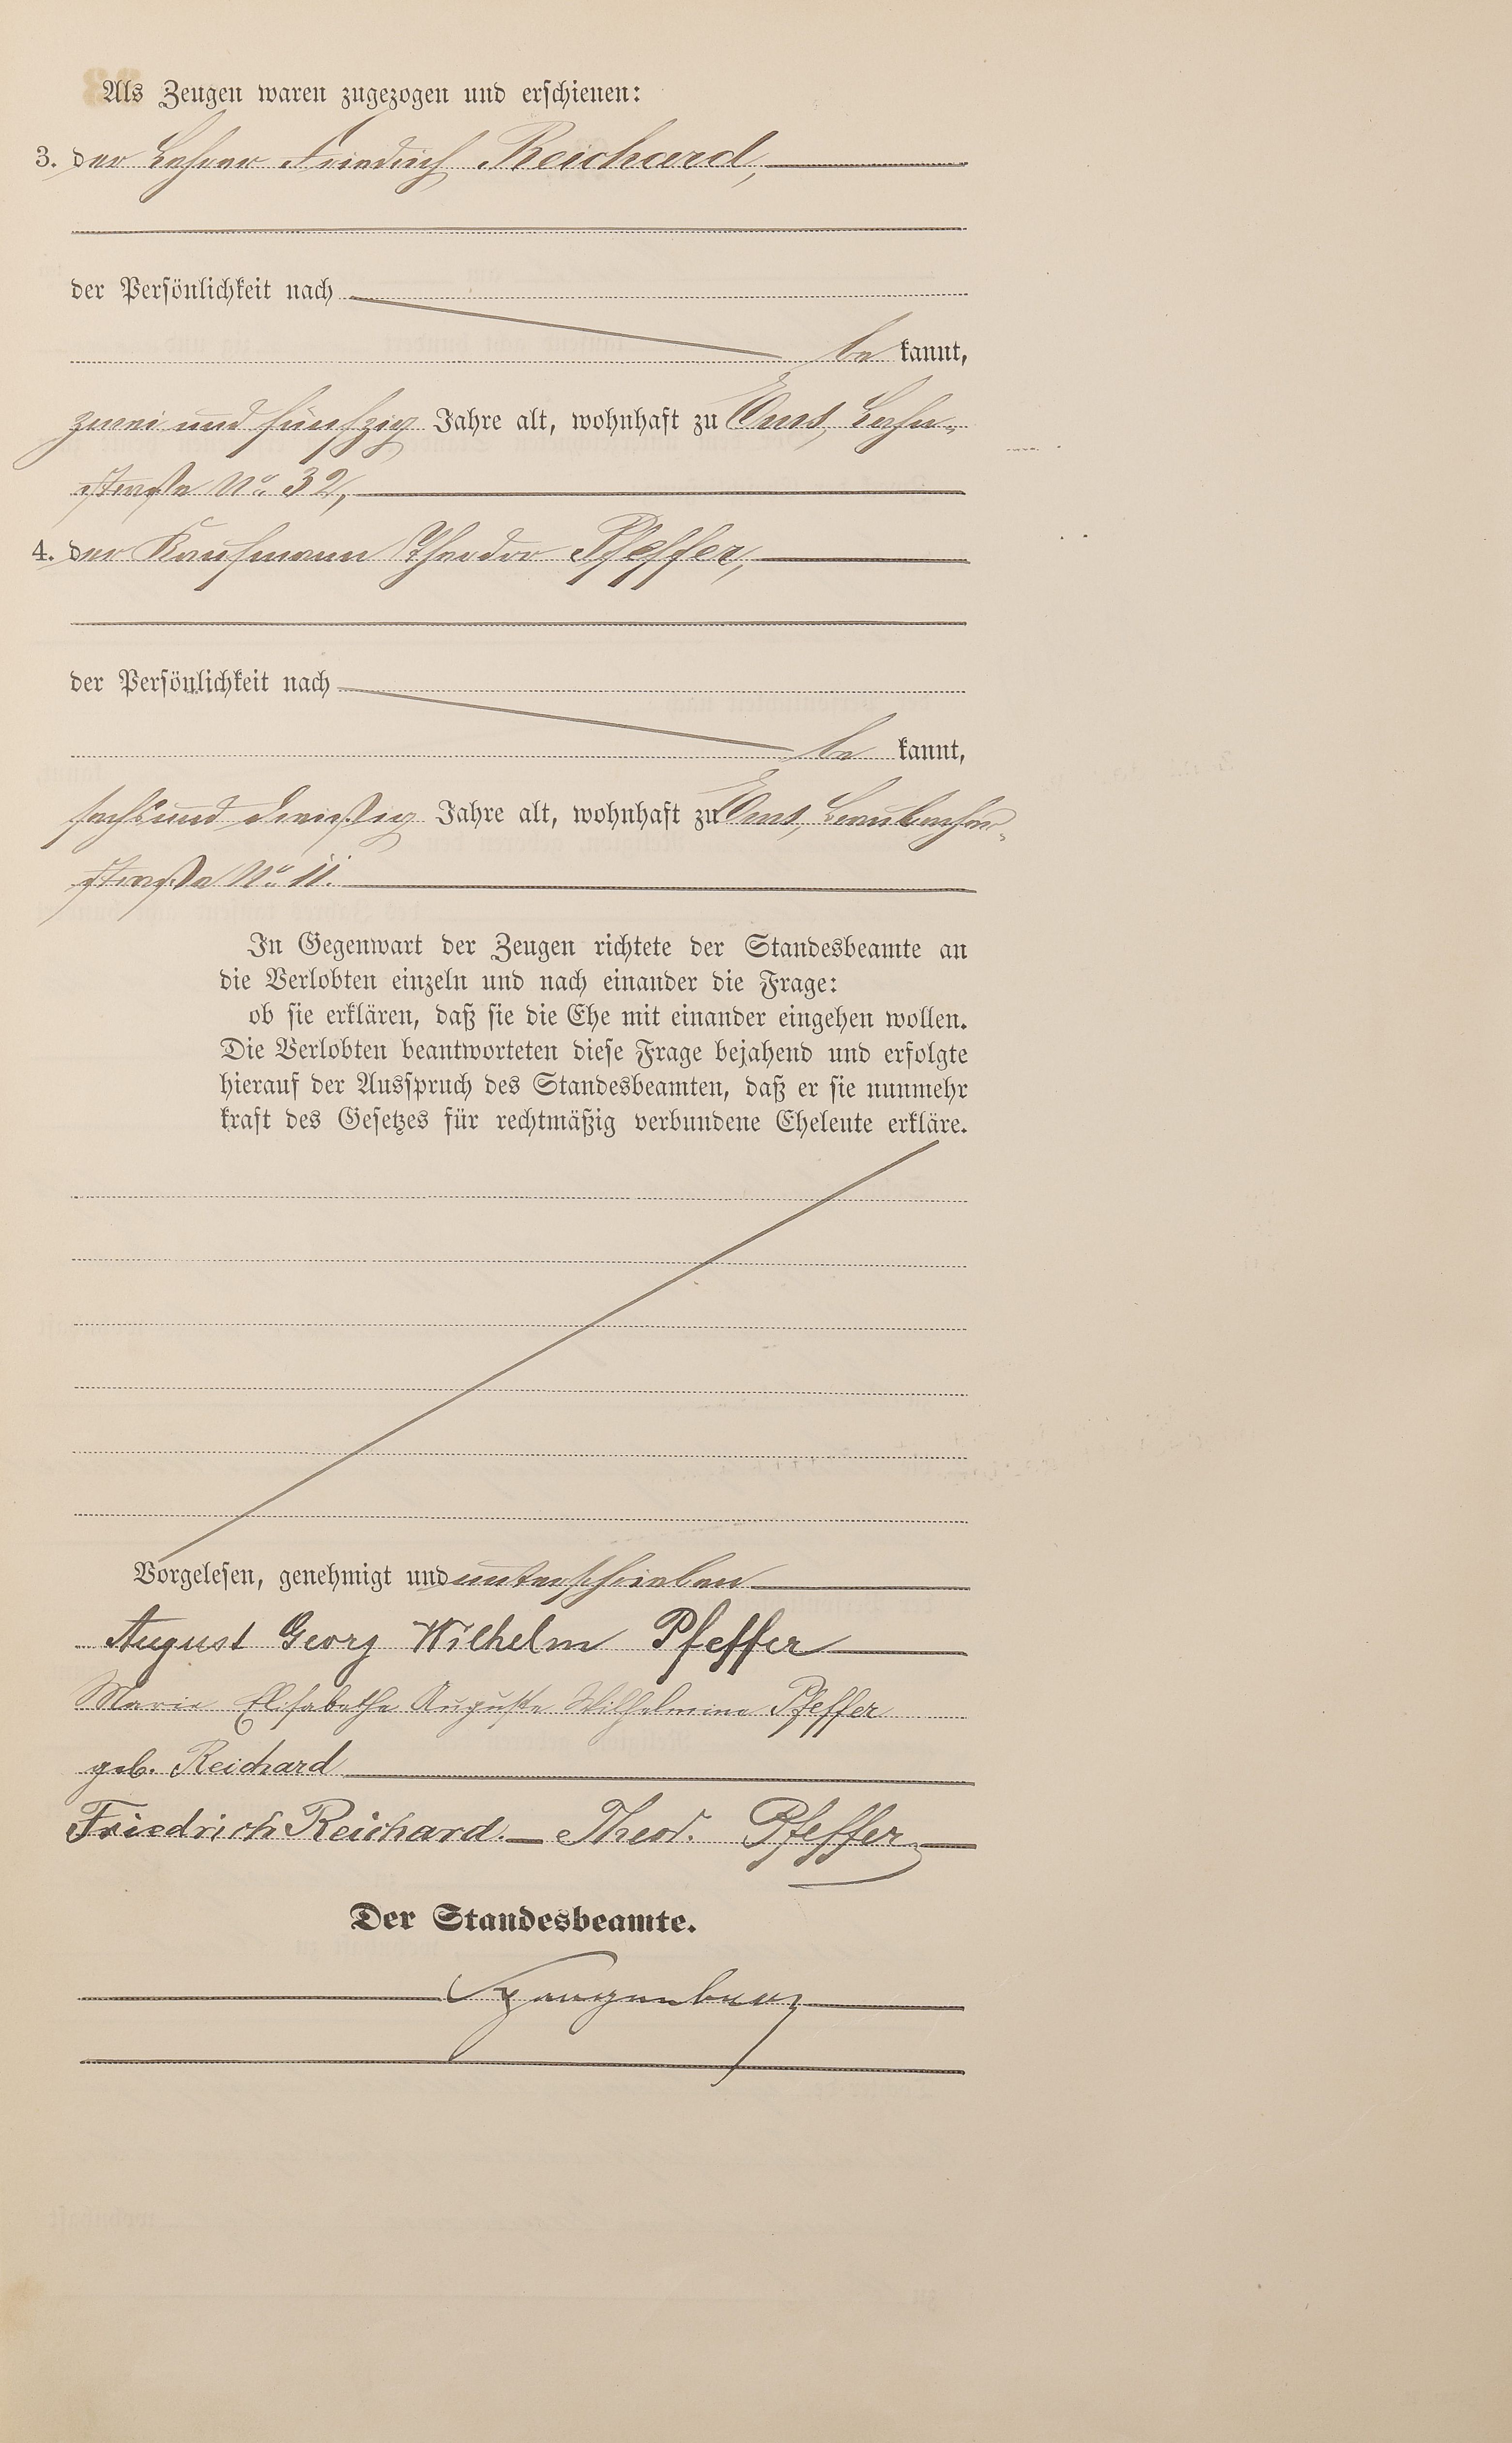 Als Zeugen waren zugezogen und erschienen:
3. der Lehrer Friedrich Reichard,
der Persönlichkeit nach
be kannt,
zwei und fünfzig Jahre alt, wohnhaft zu Ems, Lahn-
straße No. 32,
4. der Kaufmann Theodor Pfeffer,
der Persönlichkeit nach
be kannt,
sechsund dreißig Jahre alt, wohnhaft zu Ems, Braubacher-
straße No. 11.
In Gegenwart der Zeugen richtete der Standesbeamte an
die Verlobten einzeln und nach einander die Frage:
ob sie erklären, daß sie die Ehe mit einander eingehen wollen.
Die Verlobten beantworteten diese Frage bejahend und erfolgte
hierauf der Ausspruch des Standesbeamten, daß er sie nunmehr
kraft des Gesetzes für rechtmäßig verbundene Eheleute erkläre.
Vorgelesen, genehmigt und unterschrieben
August Georg Wilhelm Pfeffer
Marie Elisabethe Auguste Wilhelmine Pfeffer
geb. Reichard
Friedrich Reichard. Theod. Pfeffer
Der Standesbeamte.